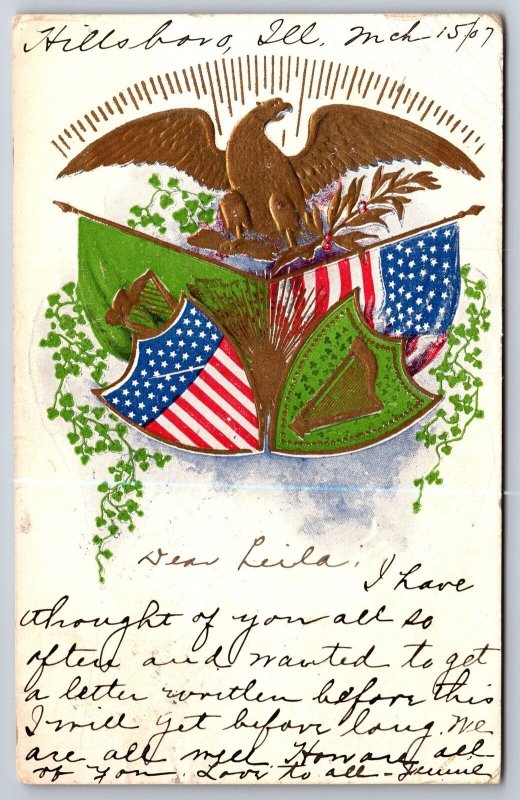 Hillsboro, Ill. Mch 15/07
Dear Leila.
I have
thought of you all so
often and wanted to get
a letter written before this
I will yet before long. We
are all well. How are all
of you. Love to all - Jennie